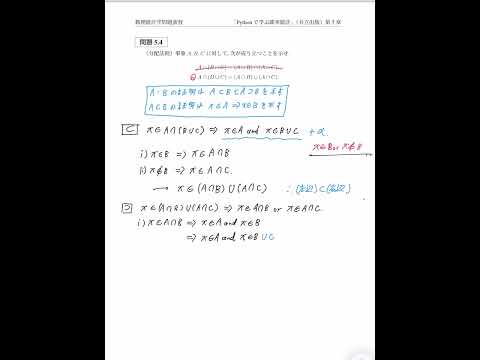 数理統計学問題演習 「Pythonで学ぶ確率統計」(共立出版)第5章
問題 5.4
(分配法則)事象 A, B, C に対して, 次が成り立つことを示せ.
② A∩(B∪C) = (A∩B)∪(A∩C).
A=Bの証明は A⊂BとA⊃Bを示す
A⊂Bの証明は x∈A ⇒ x∈Bを示す
⊂ x∈A∩(B∪C) ⇒ x∈A and x∈B∪C + α
x∈B or x∉B
i) x∈B ⇒ x∈A∩B
ii) x∉B ⇒ x∈A∩C.
→ x∈(A∩B)∪(A∩C) ∴ (左辺)⊂(右辺)
⊃ x∈(A∩B)∪(A∩C) ⇒ x∈A∩B or x∈A∩C.
i) x∈A∩B ⇒ x∈A and x∈B
⇒ x∈A and x∈B∪C